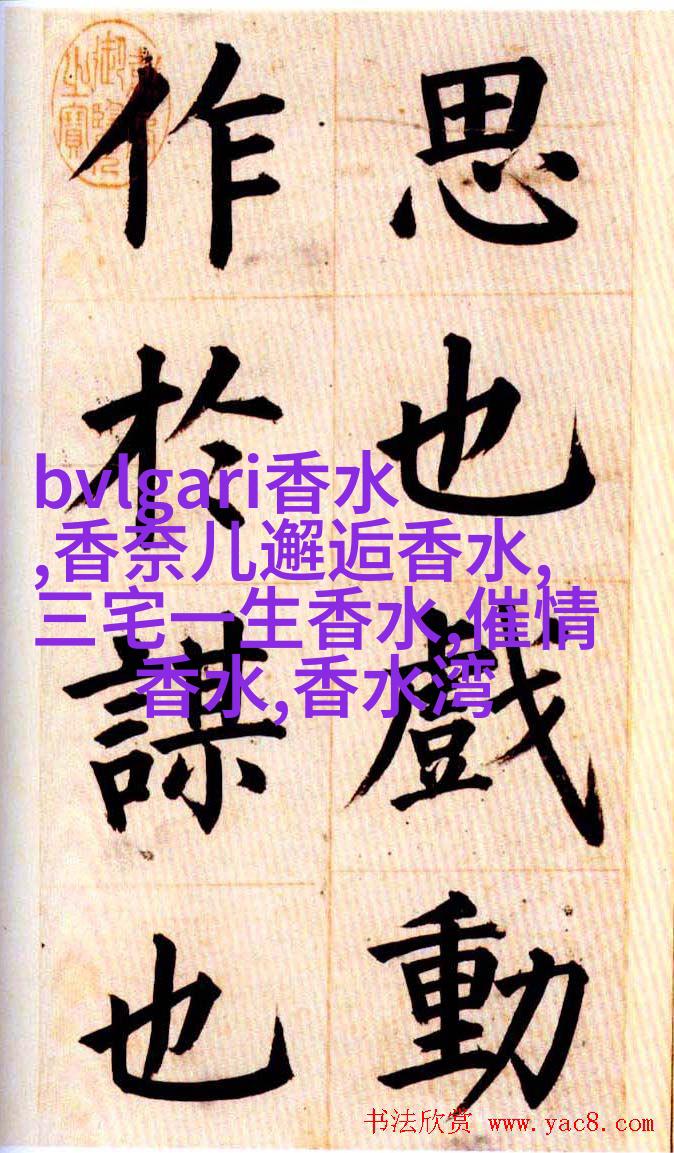 思也戲動
作於謀也
bvlgari香水
,香奈儿邂逅香水,
三宅一生香水,催情
香水,香水湾
书法欣赏 www.yac8.com